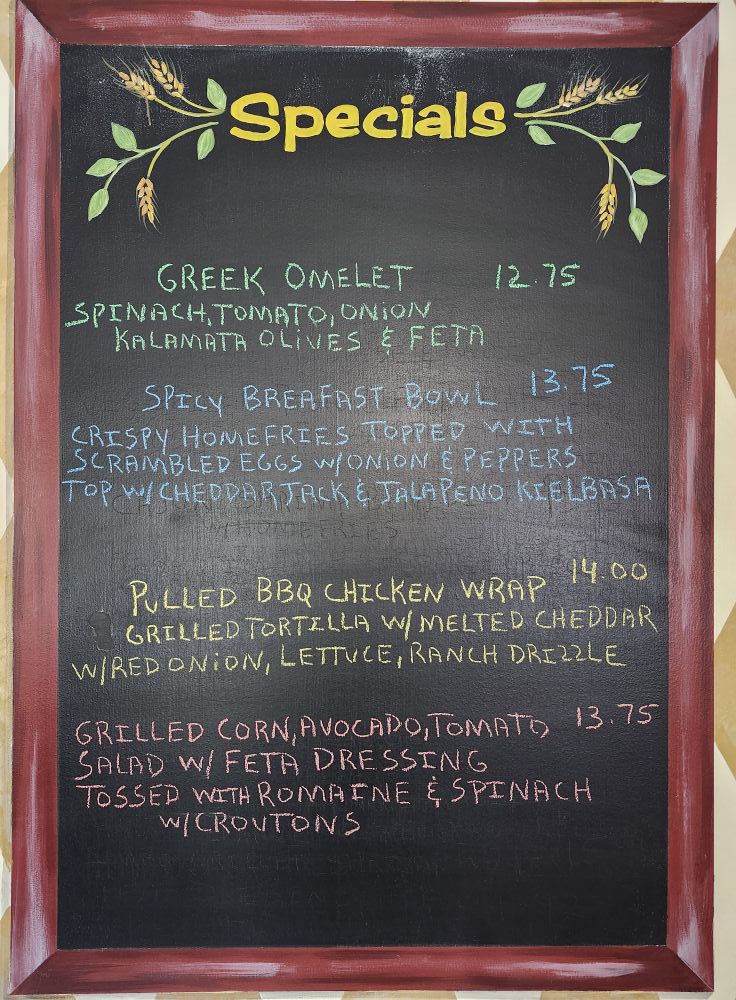 Specials
GREEK OMELET 12.75
SPINACH, TOMATO, ONION
KALAMATA OLIVES & FETA
SPICY BREAFAST BOWL 13.75
CRISPY HOMEFRIES TOPPED WITH
SCRAMBLED EGGS W/ONION & PEPPERS
TOP W/CHEDDARJACK & JALAPENO KIELBASA
W/HOMEFRIES
PULLED BBQ CHICKEN WRAP 14.00
GRILLED TORTILLA W/ MELTED CHEDDAR
W/RED ONION, LETTUCE, RANCH DRIZZLE
GRILLED CORN, AVOCADO, TOMATO 13.75
SALAD W/ FETA DRESSING
TOSSED WITH ROMAINE & SPINACH
W/CROUTONS